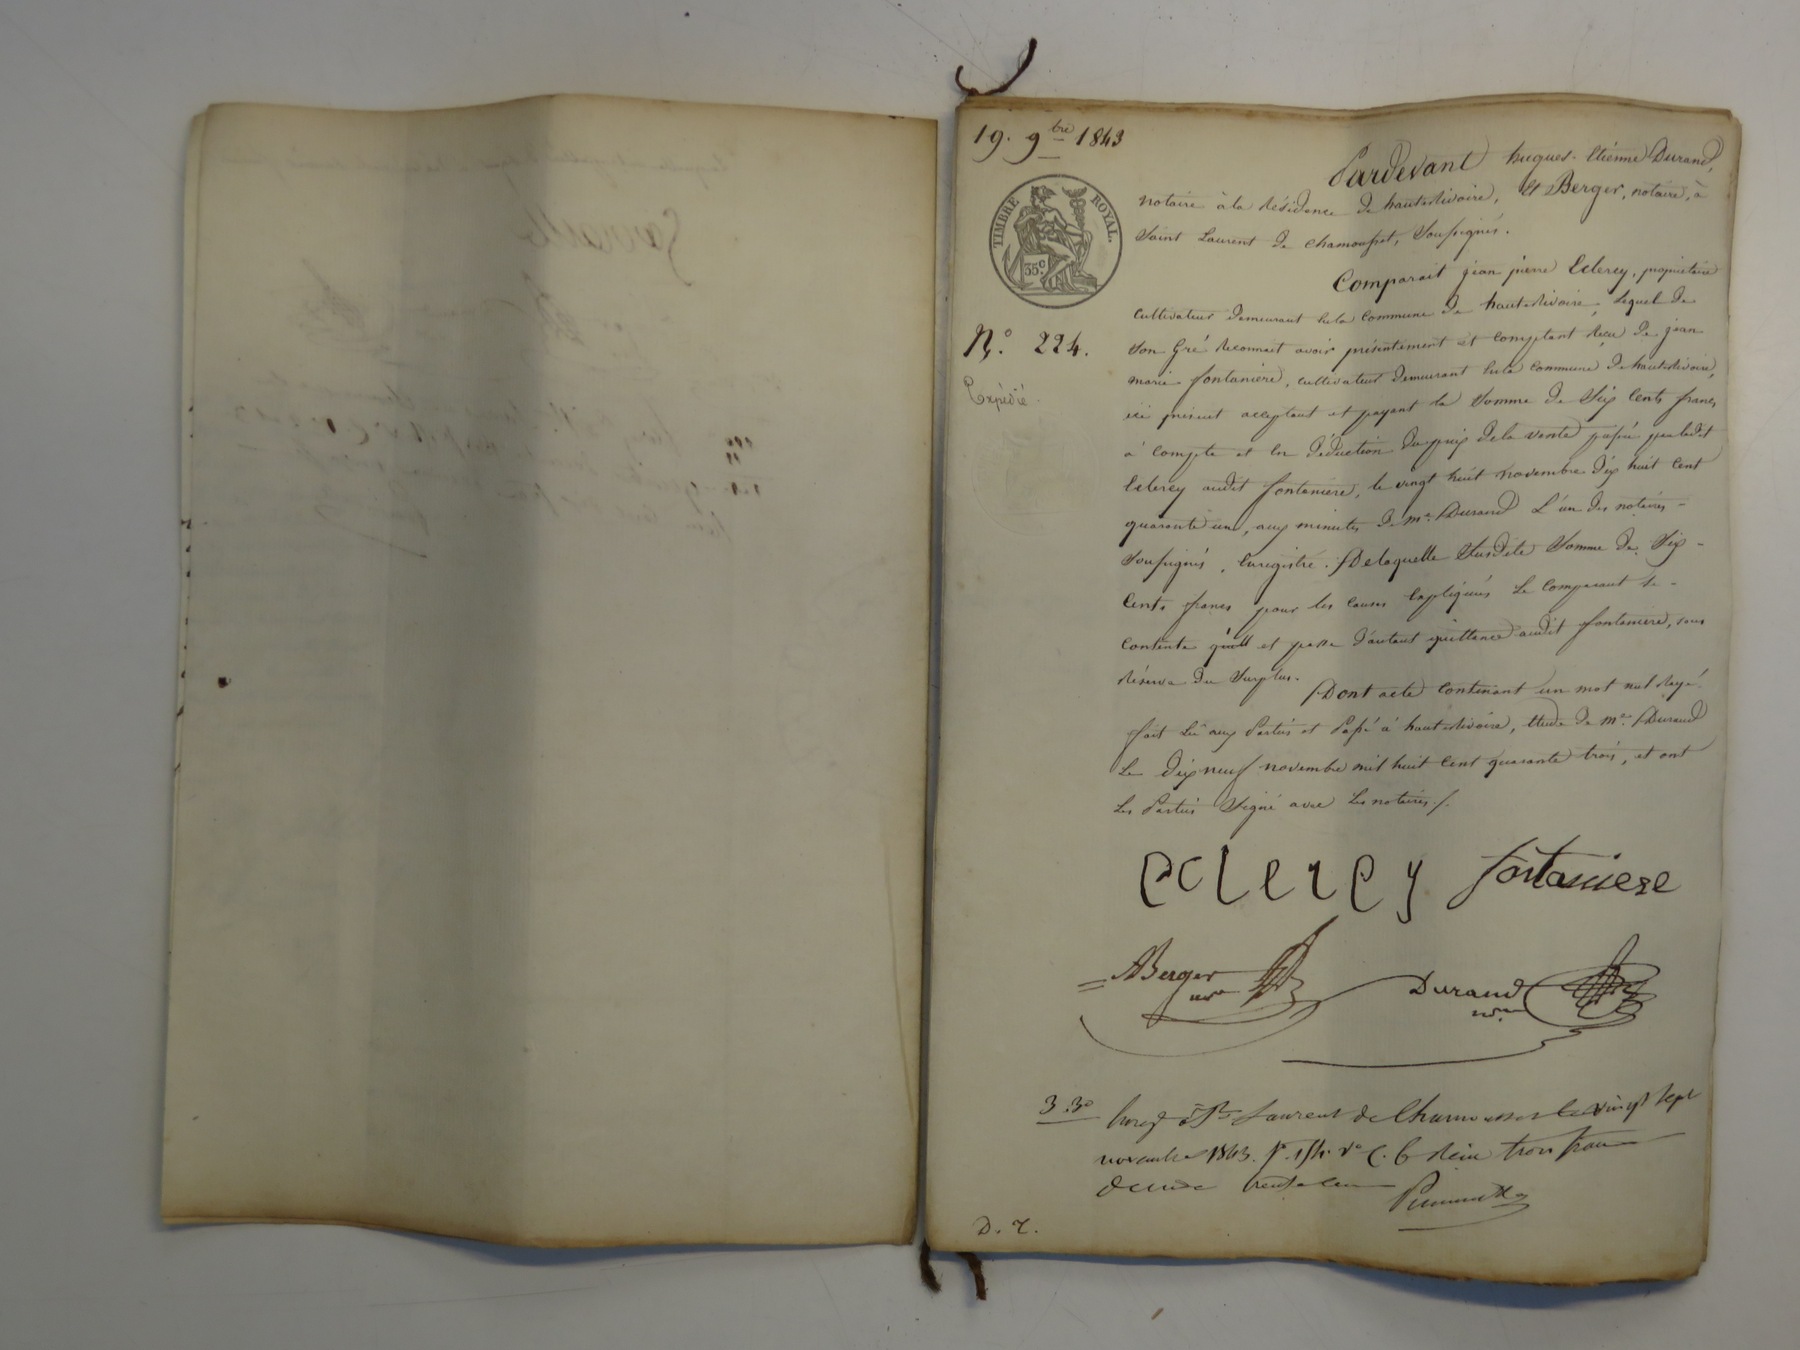 19. 9bre 1843
TIMBRE ROYAL.
35c
N.° 224.
Expédié.
Pardevant hugues-Etienne Durand,
notaire à la résidence de hauterivoire, Et Berger, notaire, à
Saint Laurent de chamousset, Soussignés.
Comparait jean pierre Eclercy, propriétaire
cultivateur demeurant En la commune de hauterivoire, Lequel de
Son Gré Reconnait avoir présentement et comptant Reçu de jean
marie fontaniere, cultivateur demeurant En la commune de hauterivoire,
ici présent acceptant et payant la Somme de Six Cents francs
à compte et En déduction du prix de la vente passée par ledit
Eclercy audit fontaniere, le vingt huit novembre dix huit cent
quarante un, aux minutes de me. Durand L'un des notaires
Soussignés, Enregistré. De laquelle Susdite Somme de Six
Cents francs pour les causes Expliquées Le comparant se
contente et passe d'autant quittance audit fontaniere, sans
Réserve du Surplus.
Dont acte contenant un mot nul Rayé.
fait Lû aux Parties et Passé à hauterivoire, Etude de me. Durand
Le dix neuf novembre mil huit cent quarante trois, et ont
Les Parties Signé avec Les notaires./.
eclercy fontaniere
ABerger
nre
Durand
nre
3.30 Enreg. à St Laurent de Chamousset le vingt sept
novembre 1843. f° 154. v° C. 6 Reçu trois francs
decime trente cent
D. 7.